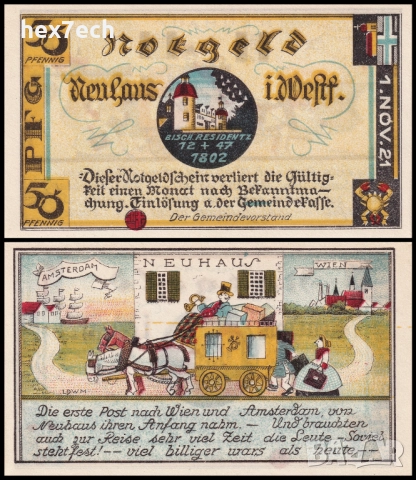 hex7ech
50
PFENNIG
Notgeld
Neuhaus i. Westf.
PFG
50
PFENNIG
1. NOV. 21
BISCH. RESIDENTZ
12 + 47
1802
Dieser Notgeldschein verliert die Gültig-
keit einen Monat nach Bekanntma-
chung. Einlösung a. der Gemeindekasse.
Der Gemeindevorstand
NEUHAUS
AMSTERDAM
WIEN
LÖWM
Die erste Post nach Wien und Amsterdam, von
Neuhaus ihren Anfang nahm. – Und brauchten
auch zur Reise sehr viel Zeit die Leute – Soviel
steht fest! –– viel billiger wars als heute ––